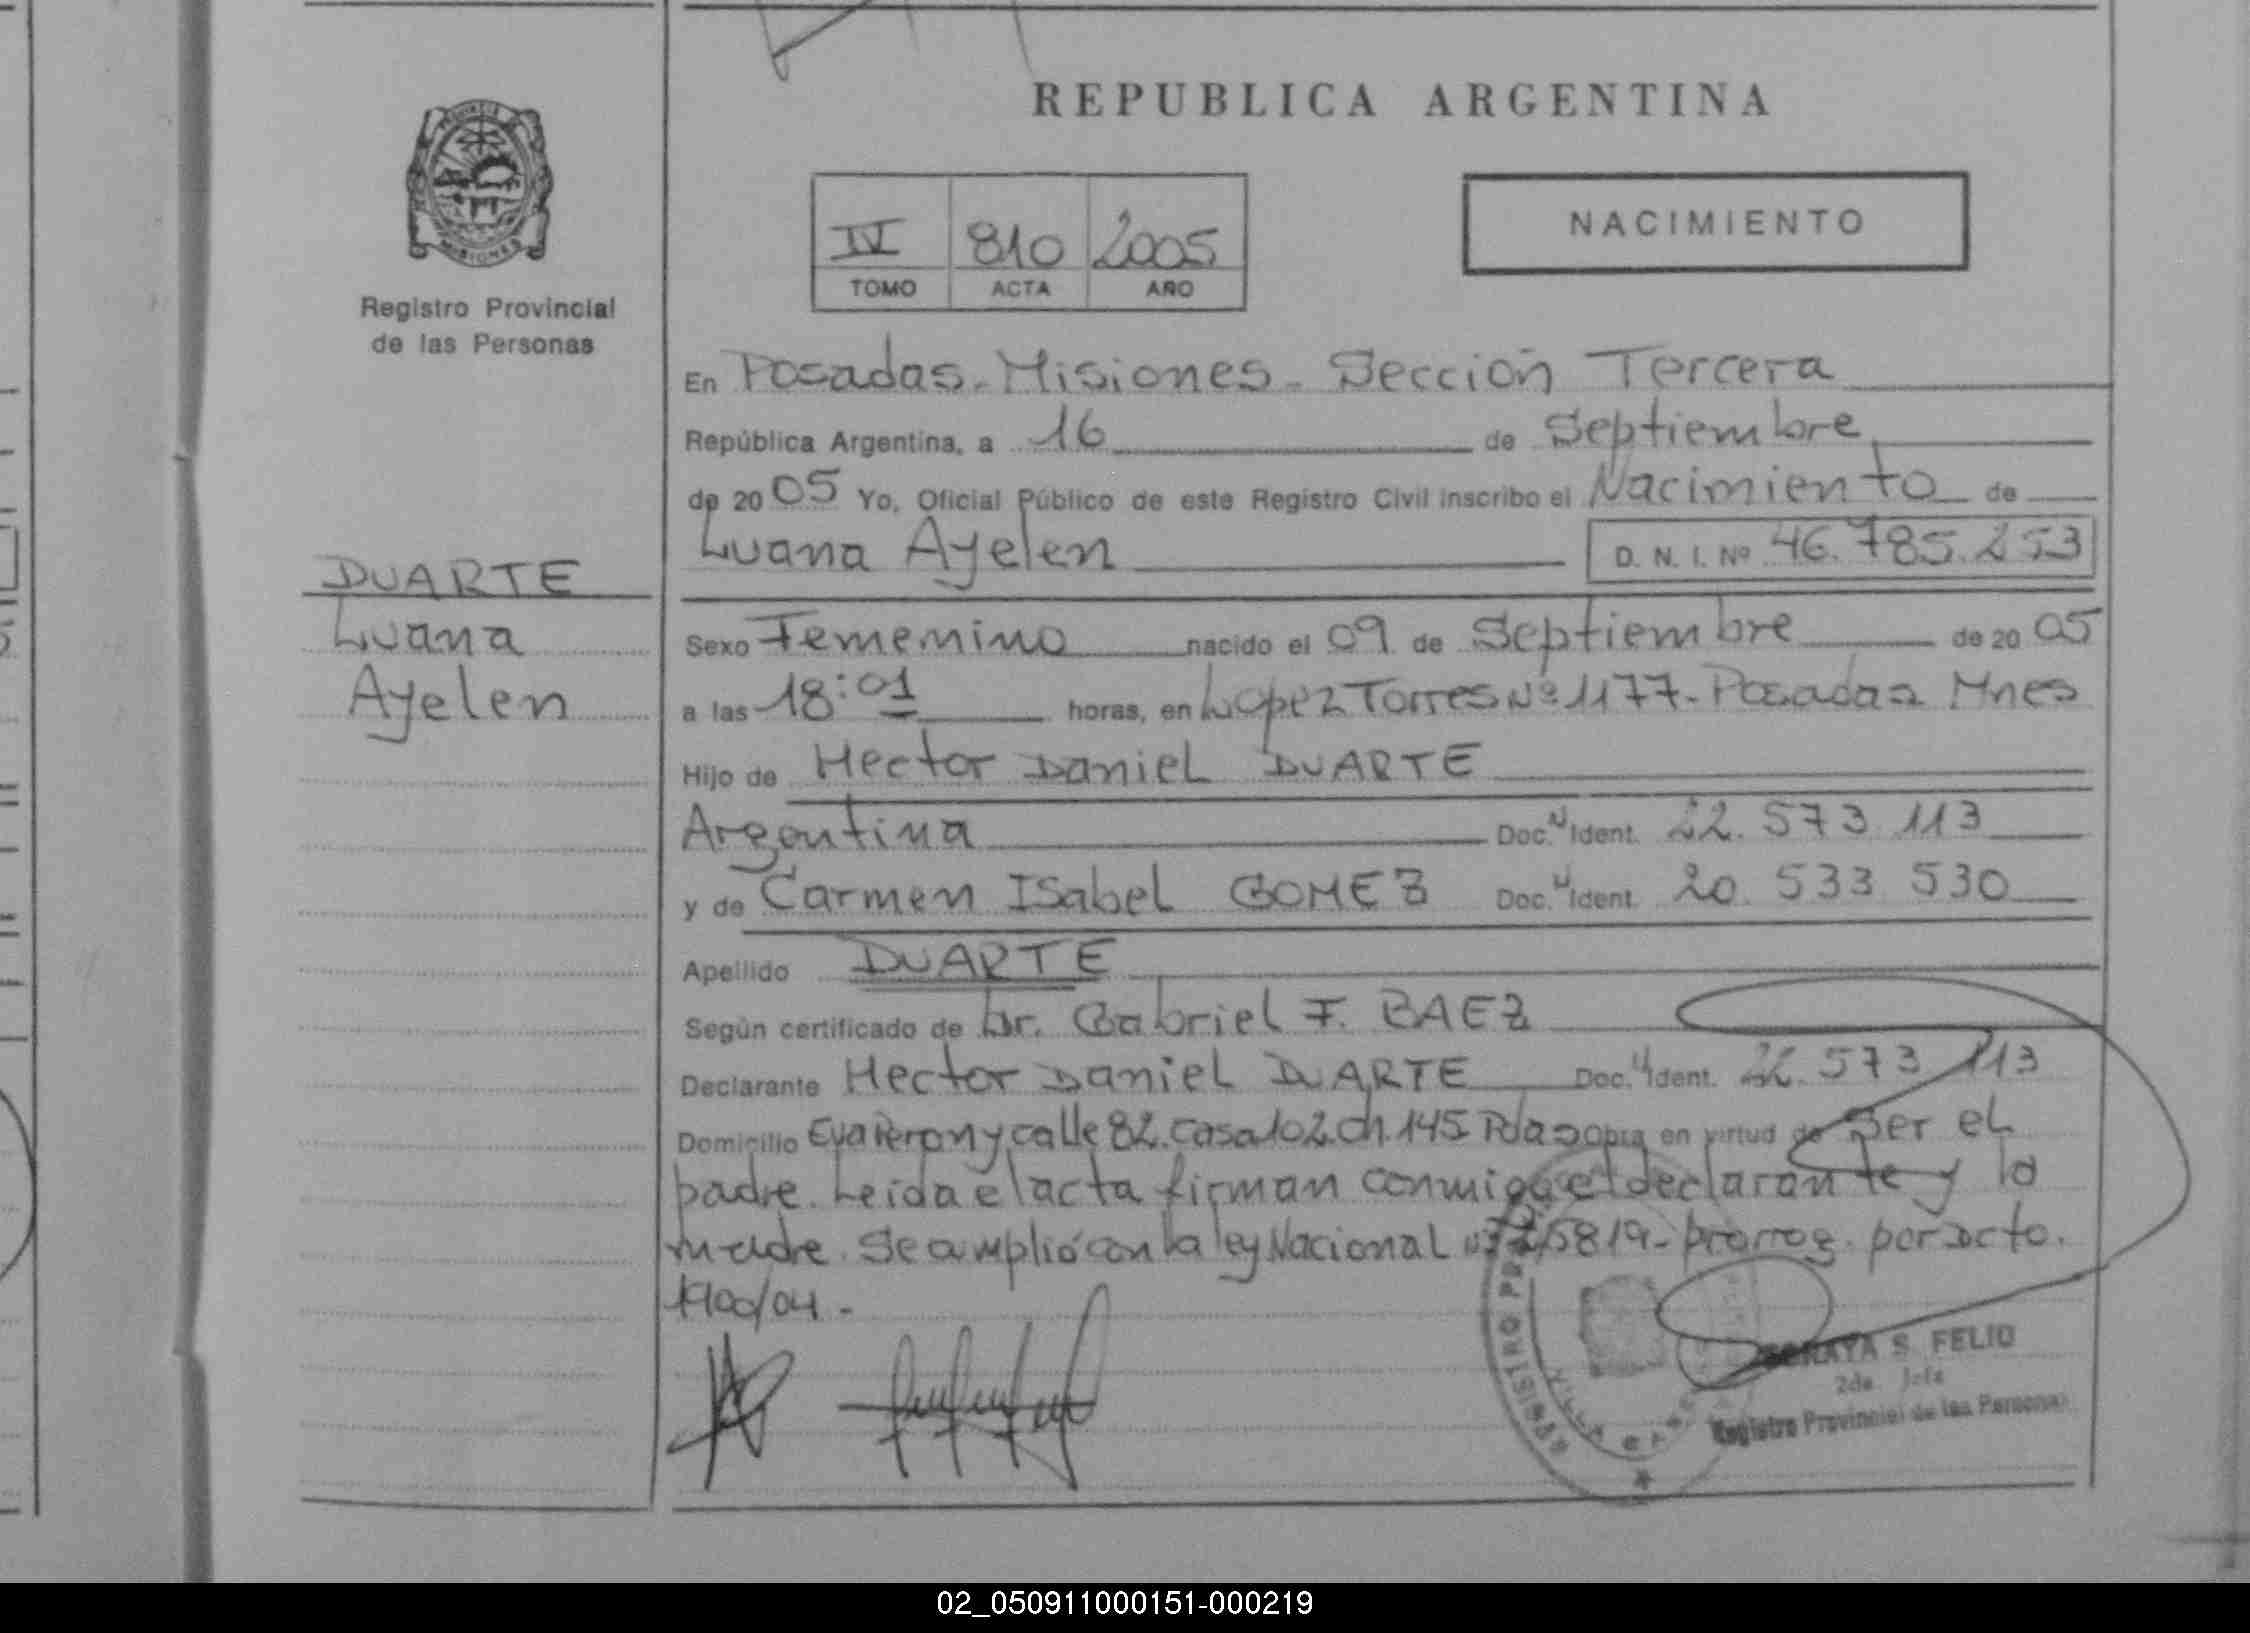 REPUBLICA ARGENTINA
PROVINCIA
MISIONES
Registro Provincial
de las Personas
IV 810 2005
TOMO ACTA AÑO
NACIMIENTO
En Posadas - Misiones - Sección Tercera
República Argentina, a 16 de Septiembre
de 2005 Yo, Oficial Público de este Registro Civil inscribo el Nacimiento de
Luana Ayelen D. N. I. Nº 46.785.253
DUARTE
Luana
Ayelen
Sexo Femenino nacido el 09 de Septiembre de 2005
a las 18:01 horas, en Lopez Torres Nº 1177 - Posadas Mnes
Hijo de Hector Daniel DUARTE
Argentina Doc. N Ident. 22.573.113
y de Carmen Isabel GOMEZ Doc. N Ident. 20.533.530
Apellido DUARTE
Según certificado de Dr. Gabriel F. BAEZ
Declarante Hector Daniel DUARTE Doc. N Ident. 22.573.113
Domicilio Eva Peron y calle 82. Casa 102. Ch. 145 Pdas Obra en virtud de Ser el
padre. Leída el acta firman conmigo el declarante y la
madre. Se amplió con la ley Nacional 25819 - prorrog. por Dcto.
1900/04 -
SORAYA S. FELIO
2da. Jefa
Registro Provincial de las Personas
02_050911000151-000219